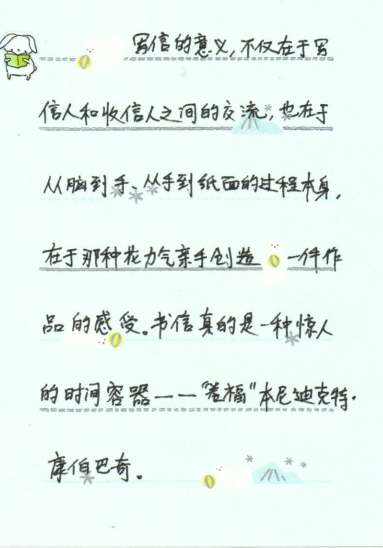 写信的意义,不仅在于写
信人和收信人之间的交流,也在于
从脑到手、从手到纸面的过程本身,
在于那种花力气亲手创造一件作
品的感受。书信真的是一种惊人
的时间容器——“卷福”本尼迪克特·
康伯巴奇。